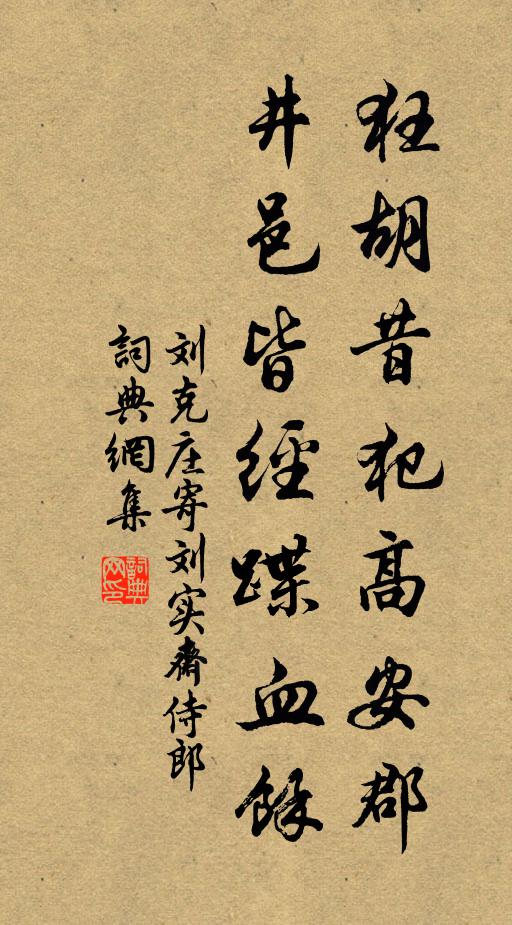 狂胡昔犯高安郡
井邑皆經蹀血餘
刘克庄寄刘实齋侍郎
詞典網集
詞典网印